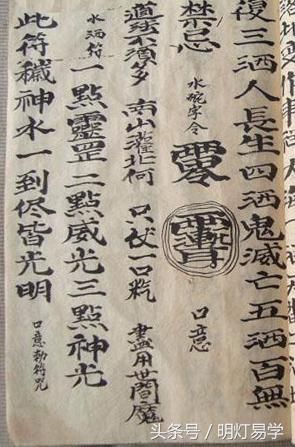 復三洒人長生四洒鬼滅亡五洒百無
禁忌 水碗字令
道法不須多 南山灌北河 只伏一口 盡用世間魔
水洒符 一點靈罡二點威光三點神光
此符穢神水一到侭皆光明 口意勅符咒
头条号 / 明灯易学